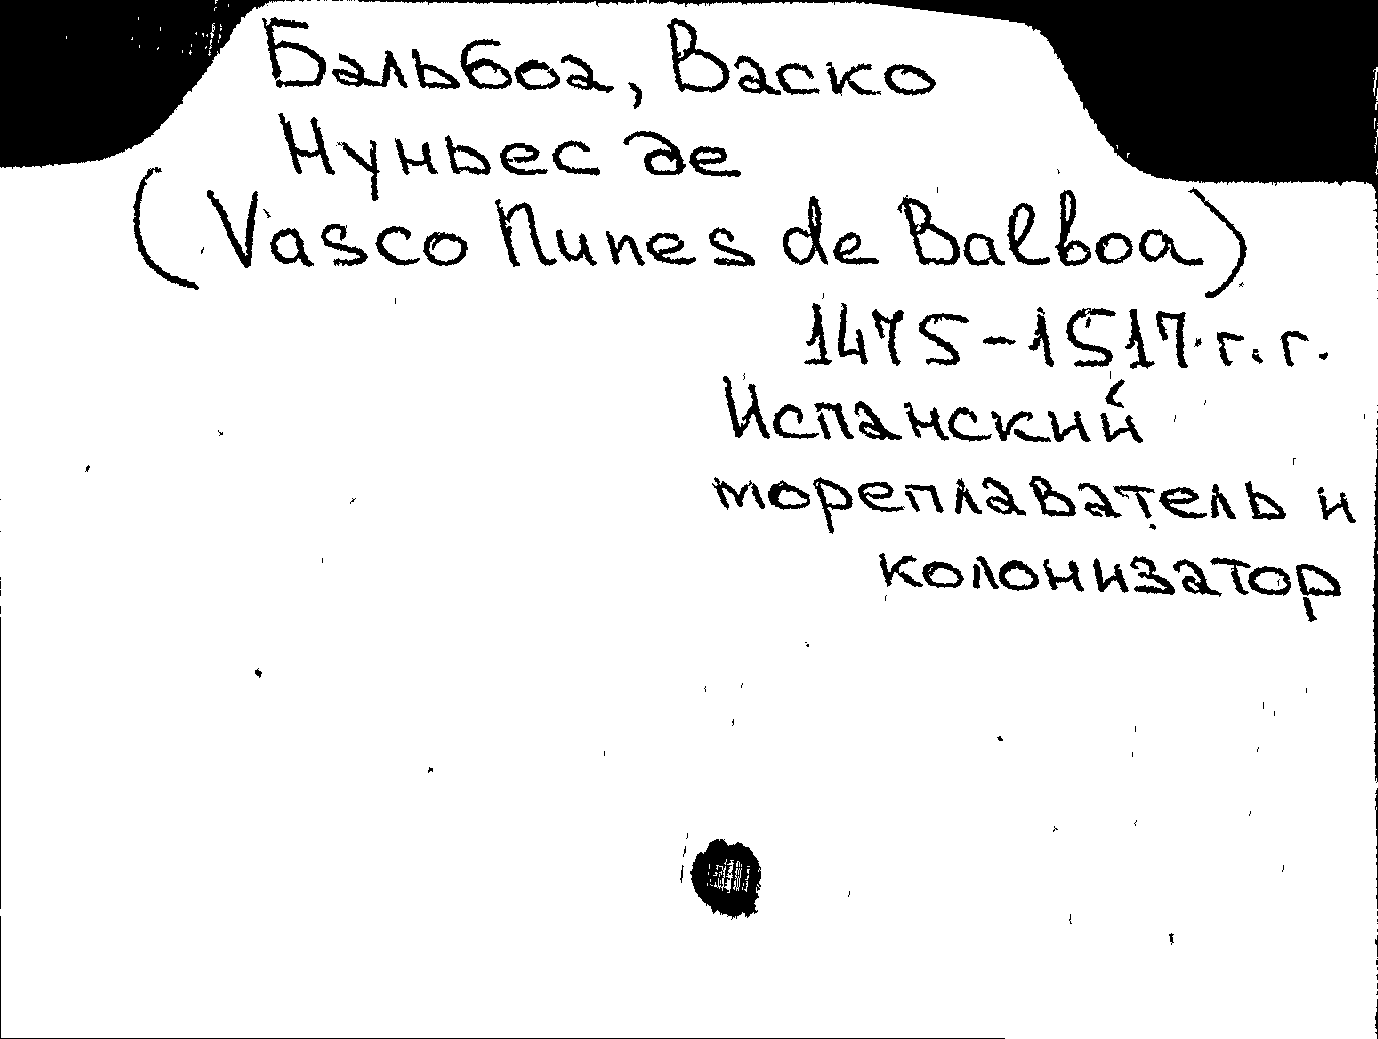 Бальбоа, Васко
Нуньес де
(Vasco Nunes de Balboa)
1475-1517 г.г.
Испанский
мореплаватель и
колонизатор